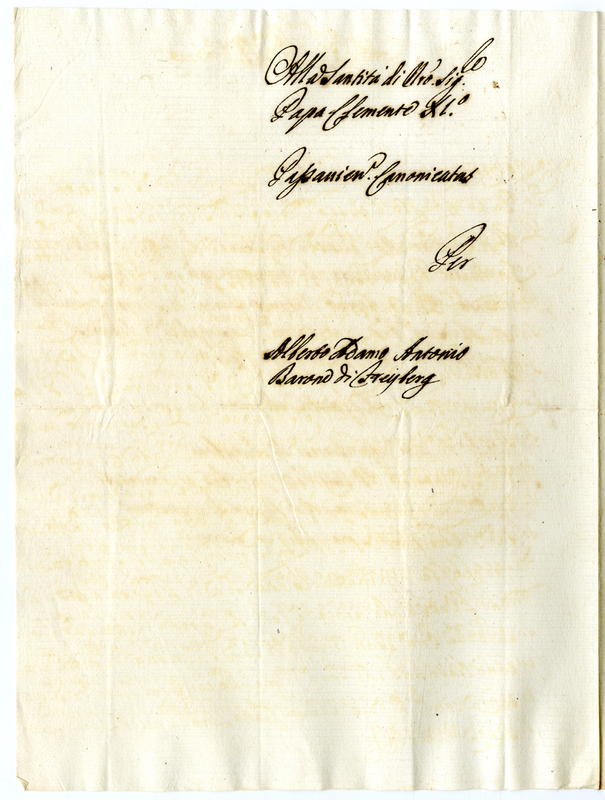 Alla Santità di Nro. Sig.re
Papa Clemente XI.o
Passavien. Canonicatus
Per
Alberto Adamo Antonio
Barone di Freyberg